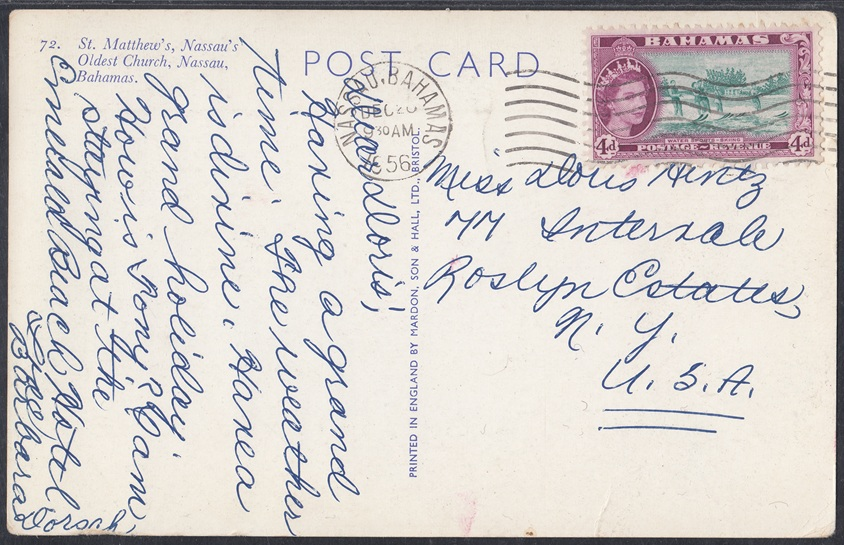 72. St. Matthew's, Nassau's
Oldest Church, Nassau,
Bahamas.
POST CARD
NASSAU, BAHAMAS
DEC 20
30 AM
1956
BAHAMAS
4d
WATER SPORTS - SKIING
POSTAGE~REVENUE
4d
Dear Doris;
Having a grand
time. The weather
is divine. Have a
grand holiday
How is Tony? I am
staying at the
Emerald Beach Hotel
Barbara
PRINTED IN ENGLAND BY MARDON, SON & HALL, LTD., BRISTOL
Miss Doris Hintz
77 Intervale
Roslyn Estates,
N. Y.
U. S. A.